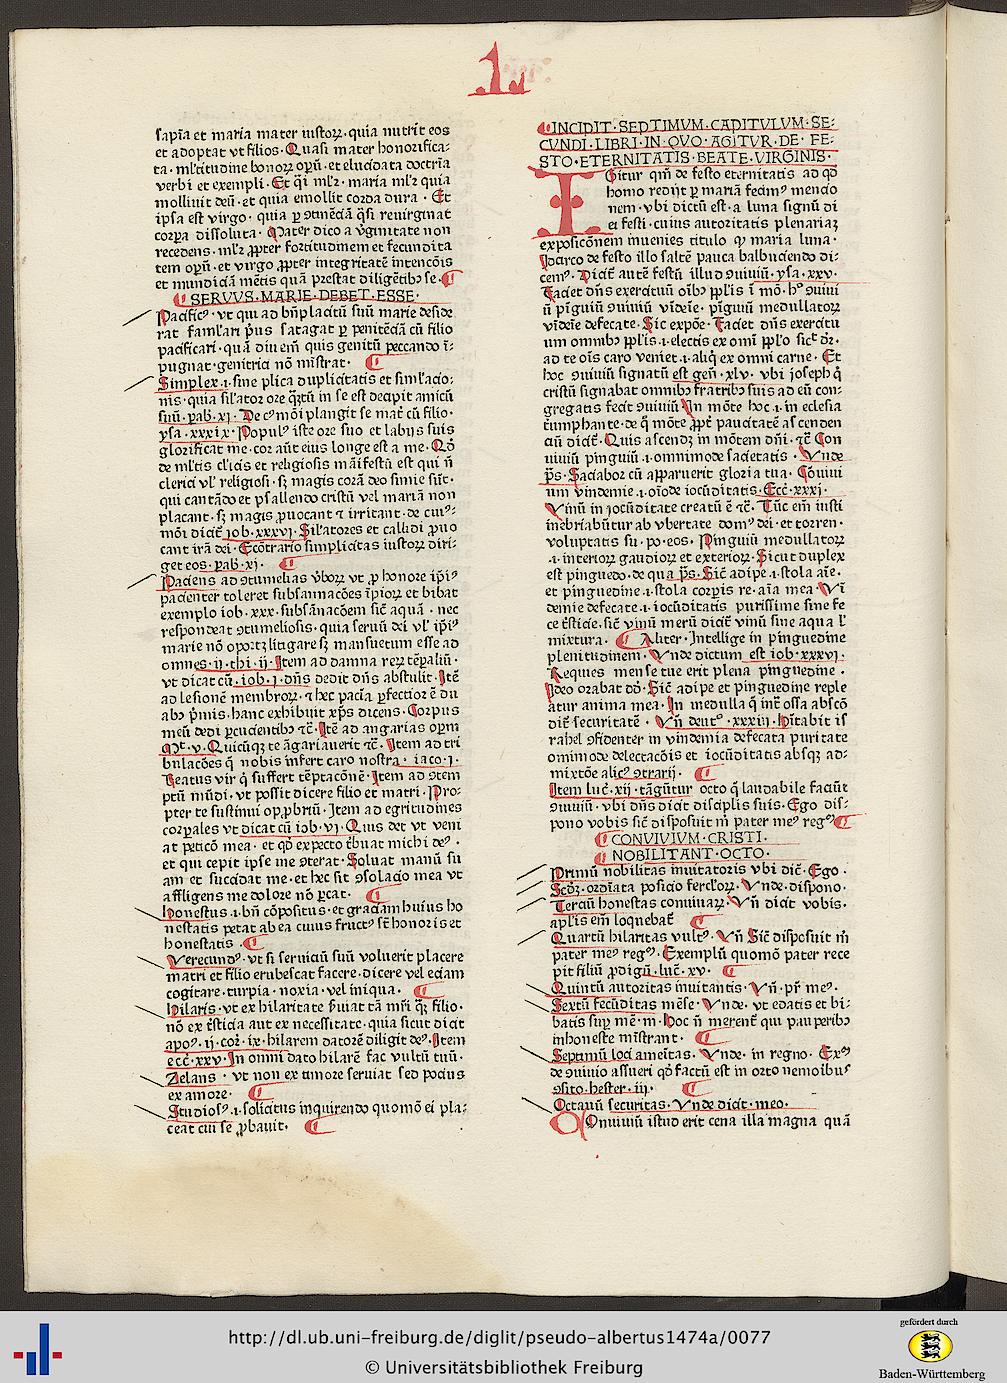 L
sapīa et maria mater iustoꝝ· quia nutrit eos
et adoptat vt filios· Quasi mater honorifica-
ta· ml'titudine honoꝝ opeꝝ· et elucidata doctrīa
verbi et exempli· Et q̄i ml'r· maria ml'r quia
molliuit deū· et quia emollit corda dura· Et
ipsa est virgo· quia ꝑ ꝯtinēciā q̄si reuirginat
corꝑa dissoluta· Mater dico a v̓ginitate non
recedens· ml'r ꝓpter fortitudinem et fecundita
tem opeꝝ· et virgo ꝓpter integritatē intencōis
et mundiciā mētis quā prestat diligētibꝰ se·
SERVVS·MARIE·DEBET·ESSE·
Pacificꝰ· vt qui ad bn̄placitū suū marie deside
rat faml'ari pͥus satagat ꝑ penitēciā cū filio
pacificari· quā diu em̄ quis genitū peccando ī-
pugnat· genitrici nō mīstrat·
Simplex·i· sine plica duplicitatis et siml'acio-
nis· quia sil'ator ore q̄ꝫtū in se est decipit amicū
suū· pab· xi· De cꝰmōi plangit se mat̄ cū filio·
ysa· xxxix· Populꝰ iste ore suo et labijs suis
glorificat me· cor aūt eius longe est a me· Qō
de ml'tis cl'icis et religiosis māifestū est qui n̄
clerici vl' religiosi· sꝫ magis corā deo simie sūt·
qui cantādo et psallendo cristū vel mariā non
placant· sꝫ magis ꝓuocant ⁊ irritant· de cuiꝰ-
mōi dicit̄ iob· xxxvi· Sil'atores et callidi ꝓuo
cant irā dei· Ecōtrario simplicitas iustoꝝ diri-
get eos· pab· xi·
Paciens ad ꝯtumelias v̓boꝝ vt ꝓ honore ip̄iꝰ
pacienter toleret subsannacōes īpioꝝ et bibat
exemplo iob· xxx· subsānacōem sic̄ aquā· nec
respondeat ꝯtumeliosis· quia seruū dei vl' ip̄iꝰ
marie nō oportꝫ litigare sꝫ mansuetum esse ad
omnes· ij· thi· ij· Item ad damna reꝝ tēꝑaliū·
vt dicat cū· iob· i· dn̄s dedit dn̄s abstulit· Itē
ad lesionē membroꝝ· ⁊ hec pacīa ꝑfectior ē du
abꝰ pͥmis· hanc exhibuit xp̄s dicens· Corpus
meū dedi ꝑcucientibꝰ ⁊c̄· Itē ad angarias opeꝝ
Mt̄· v· Quicūqꝫ te āgariauerit ⁊c̄· Item ad tri
bulacōes q̄ nobis infert caro nostra· iaco· i·
Beatus vir q̄ suffert tēptacōnē· Item ad ꝯtem
ptū mūdi· vt possit dicere filio et matri· Pro-
pter te sustinui opꝓbriū· Item ad egritudines
corꝑales vt dicat cū iob· vi· Quis det vt veni
at peticō mea· et qd̄ expecto t̓buat michi deꝰ·
et qui cepit ipse me ꝯterat· Soluat manū su
am et succidat me· et hec sit ꝯsolacio mea vt
affligens me dolore nō ꝑcat·
Honestus·i· bn̄ cōpositus· et graciam huius ho
nestatis petat ab ea cuius fructꝰ sūt honoris et
honestatis·
Verecundꝰ· vt si seruiciū suū voluerit placere
matri et filio erubescat facere· dicere vel eciam
cogitare· turpia· noxia· vel iniqua·
Hilaris· vt ex hilaritate p̄uiat tā mr̄i qꝫ filio·
nō ex t̓sticia aut ex necessitate· quia sicut dicit
apoꝰ· ij· cor̄· ix· hilarem datorē diligit deꝰ· Item
ecc̄· xxv· In omni dato hilarē fac vultū tuū·
Zelans· vt non ex timore seruiat sed pocius
ex amore·
Studiosꝰ·i· solicitus inquirendo quomō ei pla-
ceat cui se ꝓbauit·
INCIPIT·SEPTIMVM·CAPITVLVM·SE-
CVNDI·LIBRI·IN·QVO·AGITVR·DE·FE-
STO·ETERNITATIS·BEATE·VIRGINIS·
IGitur qm̄ de festo eternitatis ad qd̄
homo redijt ꝑ mariā fecimꝰ mencio
nem· vbi dictū est· a luna signū di
ei festi· cuius autoritatis plenariaꝫ
exposicōnem inuenies titulo ꝙ maria luna·
Idarco de festo illo saltē pauca balbuciendo di-
cemꝰ· Dicit̄ autē festū illud ꝯuiuiū· ysa· xxv·
Faciet dn̄s exercituū oībꝰ pplīs ī mō· hꝰ ꝯuiui
ū pīguiū ꝯuiuiū vīdeīe· pīguiū medullatoꝝ
vīdeīe defecate· Sic expōe· Faciet dn̄s exercitu
um omnibꝰ pplīs·i· electis ex omī pplo sic̄ dr̄·
ad te oīs caro veniet·i· aliq̄ ex omni carne· Et
hoc ꝯuiuiū signatū est gen̄· xlv· vbi joseph q̄
cristū signabat omnibꝰ fratribꝰ suis ad eū con-
gregatis fecit ꝯuiuiū· In mōte hoc·i· in eclesia
t̓umphante· de q̄ mōte ꝓpt̄ paucitatē ascenden
ciū dicit̄· Quis ascendꝫ in mōtem dn̄i· ⁊c̄ Con
uiuiū pinguiū·i· omnimode sacietatis· Vnde
p̄s· Saciabor cū apparuerit gloria tua· Conuiui
um vindemie·i· oīode iocūditatis· Ecc̄· xxxi·
Vinū in jocūditate creatū ē ⁊c̄· Tūc em̄ iusti
inebriabūtur ab vbertate domꝰ dei· et torren·
voluptatis su· po· eos· Pinguiū medullatoꝝ
·i· interioꝝ gaudioꝝ et exterioꝝ· Sicut duplex
est pinguedo· de qua p̄s· Sic̄ adipe·i· stola aīe·
et pinguedine·i· stola corꝑis re· aīa mea· Vī
demie defecate·i· iocūditatis purissime sine fe
ce t̓sticie· sic̄ vinū merū dicit̄ vinū sine aqua l'
mixtura· Aliter· Intellige in pinguedine
plenitudinem· Vnde dictum est iob· xxxvi·
Requies mense tue erit plena pinguedine·
Ideo orabat dd̄· Sic̄ adipe et pinguedine reple
atur anima mea· In medulla q̄ int̄ ossa abscō
dit̄ securitatē· Vn̄ deutꝰ· xxxiij· Hītabit is
rahel ꝯfidenter in vindemia defecata puritate
omimode delectacōis et iocūditatis absqꝫ ad-
mixtōe alicꝰ ꝯtrarij·
Item luc̄· xij· tāgūtur octo q̄ laudabile faciūt
ꝯuiuiū· vbi dn̄s dicit disciplis suis· Ego dis-
pono vobis sic̄ disposuit m̄ pater meꝰ regꝰ
CONVIVIVM·CRISTI·
NOBILITANT·OCTO·
Primū nobilitas inuitatoris vbi dic̄· Ego·
Scd̄ꝫ· ordīata posicio fercl'oꝝ· Vnde· dispono·
Terciū honestas conuiuaꝝ· Vn̄ dicit vobis·
aplīs em̄ loquebat̄
Quartū hilaritas vultꝰ· Vn̄ Sic̄ disposuit m̄
pater meꝰ regꝰ· Exemplū quomō pater rece
pit filiū ꝓdigū· luc̄· xv·
Quintū autoritas inuitantis· Vn̄· pr̄ meꝰ·
Sextū fecūditas mēse· Vnde· vt edatis et bi-
batis suꝑ mē· m· Hoc n̄ merent̄ qui pauperibꝰ
inhoneste mīstrant·
Septimū loci ameītas· Vnde· in regno· Exꝰ
de ꝯuiuio assueri qd̄ factū est in orto nemoibuꝰ
ꝯsito· hester· iij·
Octauū securitas· Vnde dicit· meo·
COnuiuiū istud erit cena illa magna quā
http://dl.ub.uni-freiburg.de/diglit/pseudo-albertus1474a/0077
© Universitätsbibliothek Freiburg
gefördert durch
Baden-Württemberg